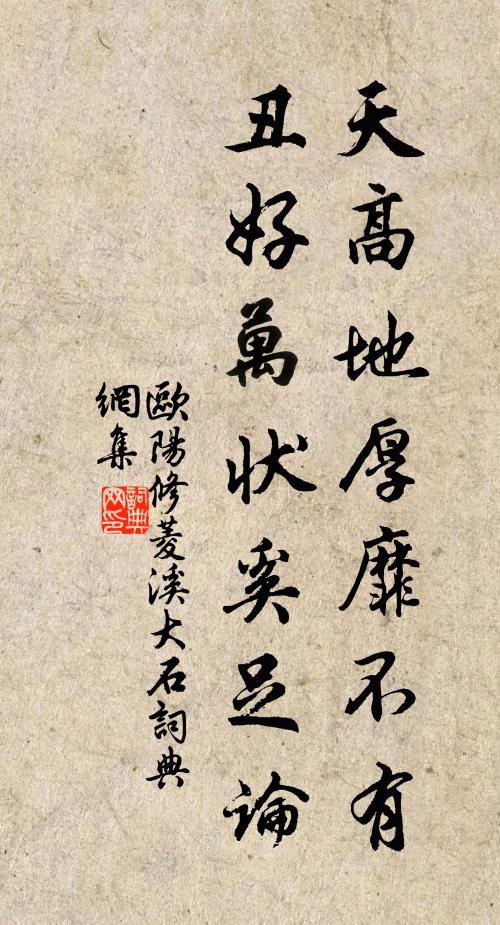 天高地厚靡不有
丑好萬状奚足論
歐陽修菱溪大石詞典
網集
詞典
网印